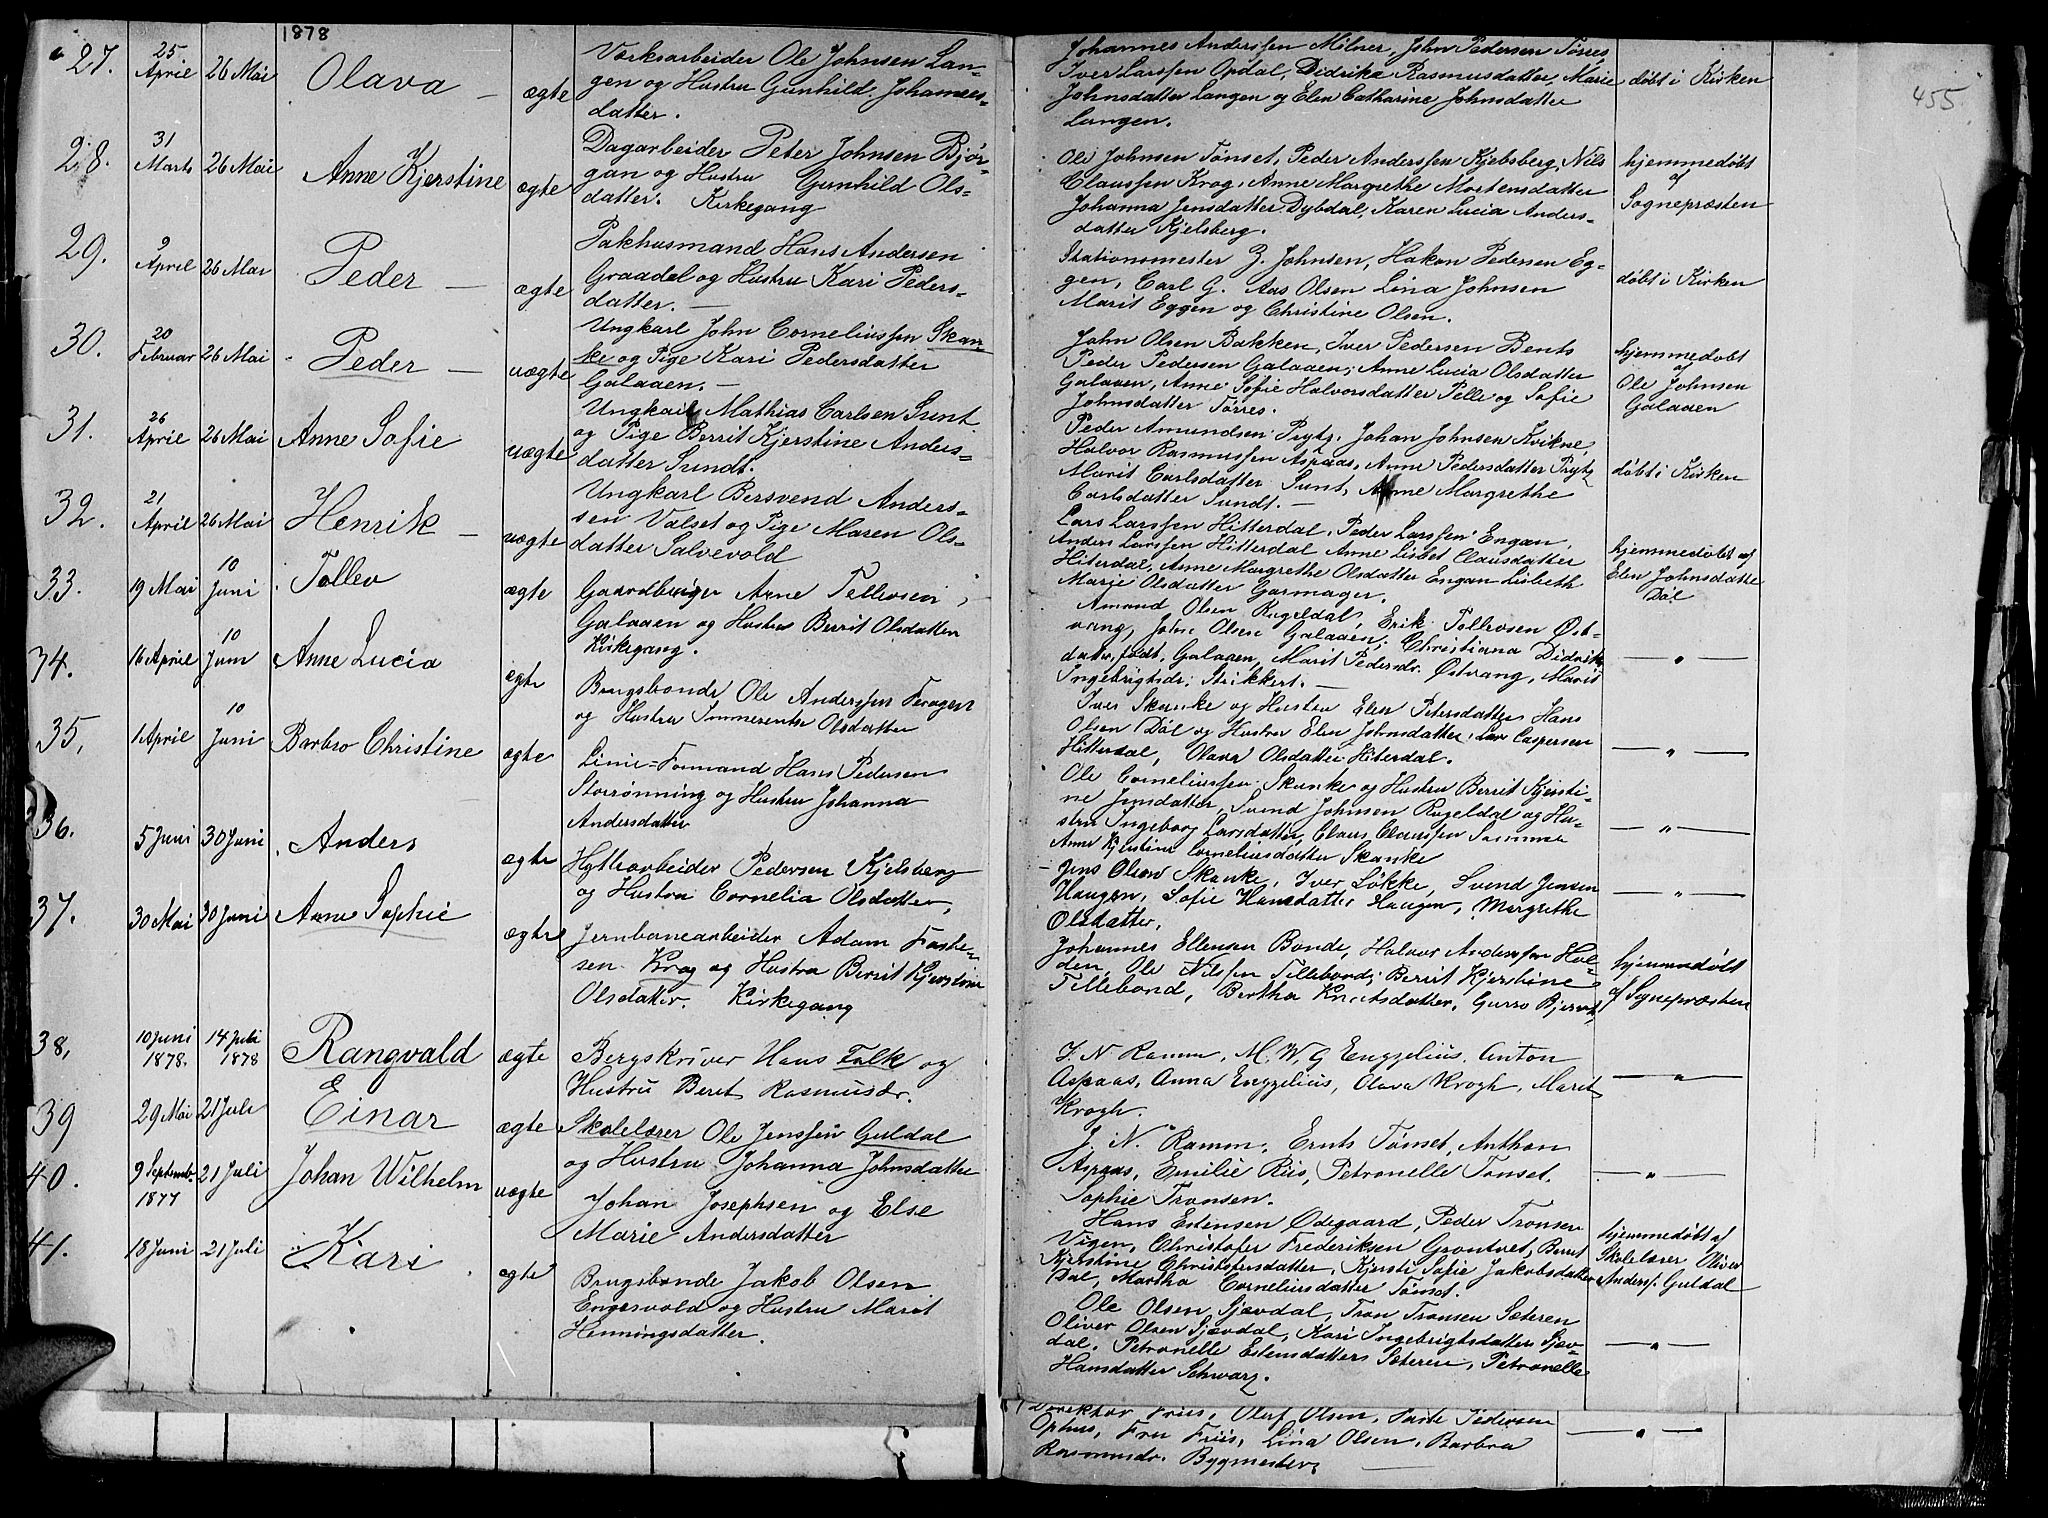 1878
455
27.
25 April
26 Mai
Olava —
ægte
Værksarbeider Ole Johnsen Lan-
gen og Hustru Gunhild Johannes-
datter.
Johannes Anderssen Milner, John Pedersen Tørres,
Iver Larssen Opdal, Didrika Rasmusdatter, Marie
Johnsdatter Langen og Elen Catharine Johnsdatter
Langen.
døbt i Kirken
28.
31 Marts
26 Mai
Anne Kjerstine
ægte
Dagarbeider Peter Johnsen Bjør-
gan og Hustru Gunhild Ols-
datter. Kirkegang
Ole Johnsen Tønset, Peder Anderssen Kjelsberg, Nils
Claussen Krog, Anne Margrethe Mortensdatter
Johanna Jensdatter Dybdal, Karen Lucia Anders-
datter Kjelsberg.
hjemmedøbt
af
Sognepræsten
29.
9 April
26 Mai
Peder —
ægte
Pakhusmand Hans Andersen
Graadal og Hustru Kari Peders-
datter. —
Stationsmester Z. Johnsen, Hakon Pedersen Eg-
gen, Carl G. Aas Olsen Lina Johnsen
Marit Eggen og Christine Olsen.
døbt i Kirken
30.
20 Februar
26 Mai
Peder —
uægte
Ungkarl John Corneliussen Skan-
ke og Pige Kari Pedersdatter
Galaaen. —
John Olsen Bakken, Iver Pedersen Bents
Peder Pedersen Galaaen, Anne Lucia Olsdatter
Galaaen, Anne Sofie Halvorsdatter Pelle og Sofie
Johnsdatter Tørres.
hjemmedøbt
af
Ole Johnsen
Galaaen
31.
26 April
26 Mai
Anne Sofie
uægte
Ungkarl Mathias Carlsen Sunt
og Pige Berrit Kjerstine Anders-
datter Sundt.
Peder Amundsen Prytz, Johan Johnsen Kvikne,
Halvor Rasmussen Aspaas, Anne Pedersdatter Prytz
Marit Carlsdatter Sunt, Anne Margrethe
Carlsdatter Sundt. —
døbt i Kirken
32.
21 April
26 Mai
Henrik —
uægte
Ungkarl Bersvend Anders-
sen Valset og Pige Maren Ols-
datter Salvevold
Lars Larssen Hitterdal, Peder Larssen Engan,
Anders Larssen Hitterdal Anne Lisbet Clausdatter
Hiterdal, Anne Margrethe Olsdatter Engan Lisbeth
Marie Olsdatter Garmager.
hjemmedøbt af
Elen Johnsdatte
Døl
33.
19 Mai
10 Juni
Tollev
ægte
Gaardbruger Arne Tellevsen
Galaaen og Hustru Berrit Olsdatter
Kirkegang.
Amund Olsen Rugeldal, Erik Tollevsen Øst-
vang, John Olsen Galaaen, Christiana Didrik
datter, født Galaaen, Marit Pedersdr. Østvang, Marit
Ingebrigtsdr. Strikkert. —
— " —
34.
16 April
10 Juni
Anne Lucia
ægte
Brugsbonde Ole Anderssen Feragen
og Hustru Immerentse Olsdatter
Iver Skanke og Hustru Elen Petersdatter Hans
Olsen Døl og Hustru Elen Johnsdatter, Lars Caspersen
Hitterdal, Olava Olsdatter Hiterdal.
— " —
35.
1 April
10 Juni
Barbro Christine
ægte
Linie-Formand Hans Pedersen
Storrønning og Hustru Johanna
Andersdatter
Ole Corneliussen Skanke og Hustru Berrit Kjersti-
ne Jensdatter, Svend Johnsen Rugeldal og Hu-
stru Ingeborg Larsdatter, Claus Claussen Samme
Anne Kjerstine Corneliusdatter Skanke
— " —
36.
5 Juni
30 Juni
Anders
ægte
Hyttearbeider Pedersen Kjelsberg
og Hustru Cornelia Olsdatter.
Jens Olsen Skanke, Iver Løkke, Svend Jensen
Haugen, Sofie Hansdatter Haugen, Margrethe
Olsdatter.
— " —
37.
30 Mai
30 Juni
Anne Sophie
ægte
Jernbanearbeider Adam Faste-
sen Krog og Hustru Berrit Kjerstine
Olsdatter. Kirkegang
Johannes Ellensen Bonde, Halvor Anderssen Hol-
den, Ole Nilssen Tillebonde, Berrit Kjerstine
Tillebond, Bertha Knutsdatter, Guro Bjerre
hjemmedøbt
af Sognepræsten
38.
10 Juni 1878.
14 Juli 1878
Rangvald
ægte
Bergskriver Hans Falk og
Hustru Beret Rasmusdr.
J. N Ramm, M. W. G Engzelius, Anton
Aspaas, Anna Engzelius, Olava Krogh, Maret
Krogh.
— " —
39
29 Mai
21 Juli
Einar
ægte
Skolelærer Ole Jenssen Guldal
og Hustru Johanna Johnsdatter
J. N. Ramm, Ernts Tønset, Anthon
Aspaas, Emilie Riis, Petronelle Tønset.
Sophie Tronsen.
— " —
40.
9 Septemb. 1877
21 Juli
Johan Wilhelm
uægte
Johan Josephsen og Else
Marie Andersdatter
Hans Estensen Ødegaard, Peder Tronsen
Vigen, Christofer Frederiksen Grøntvet, Berit
Kjerstine Christofersdatter, Kjersti Sofie Jakobsdatter
Dal, Martha Corneliusdatter Tønset.
hjemmedøbt af
Skolelærer Oliver
Anders. Guldal
41.
18 Juni
21 Juli
Kari
ægte
Brugsbonde Jakob Olsen
Engesvold og Hustru Marit
Henningsdatter.
Ole Olsen Sjævdal, Tron Tronsen Sæteren
Oliver Olsen Sjævdal, Kari Ingebrigtsdatter Sjæv-
dal, Petronelle Estensdatter Sæteren, Petronelle
Hansdatter Schwarz.
— " —
Direktør Friis, Oluf Olsen, Peder Pedersen
Ophus, Fru Friis, Lina Olsen, Barbra
Rasmusdr. Bygmester
— " —